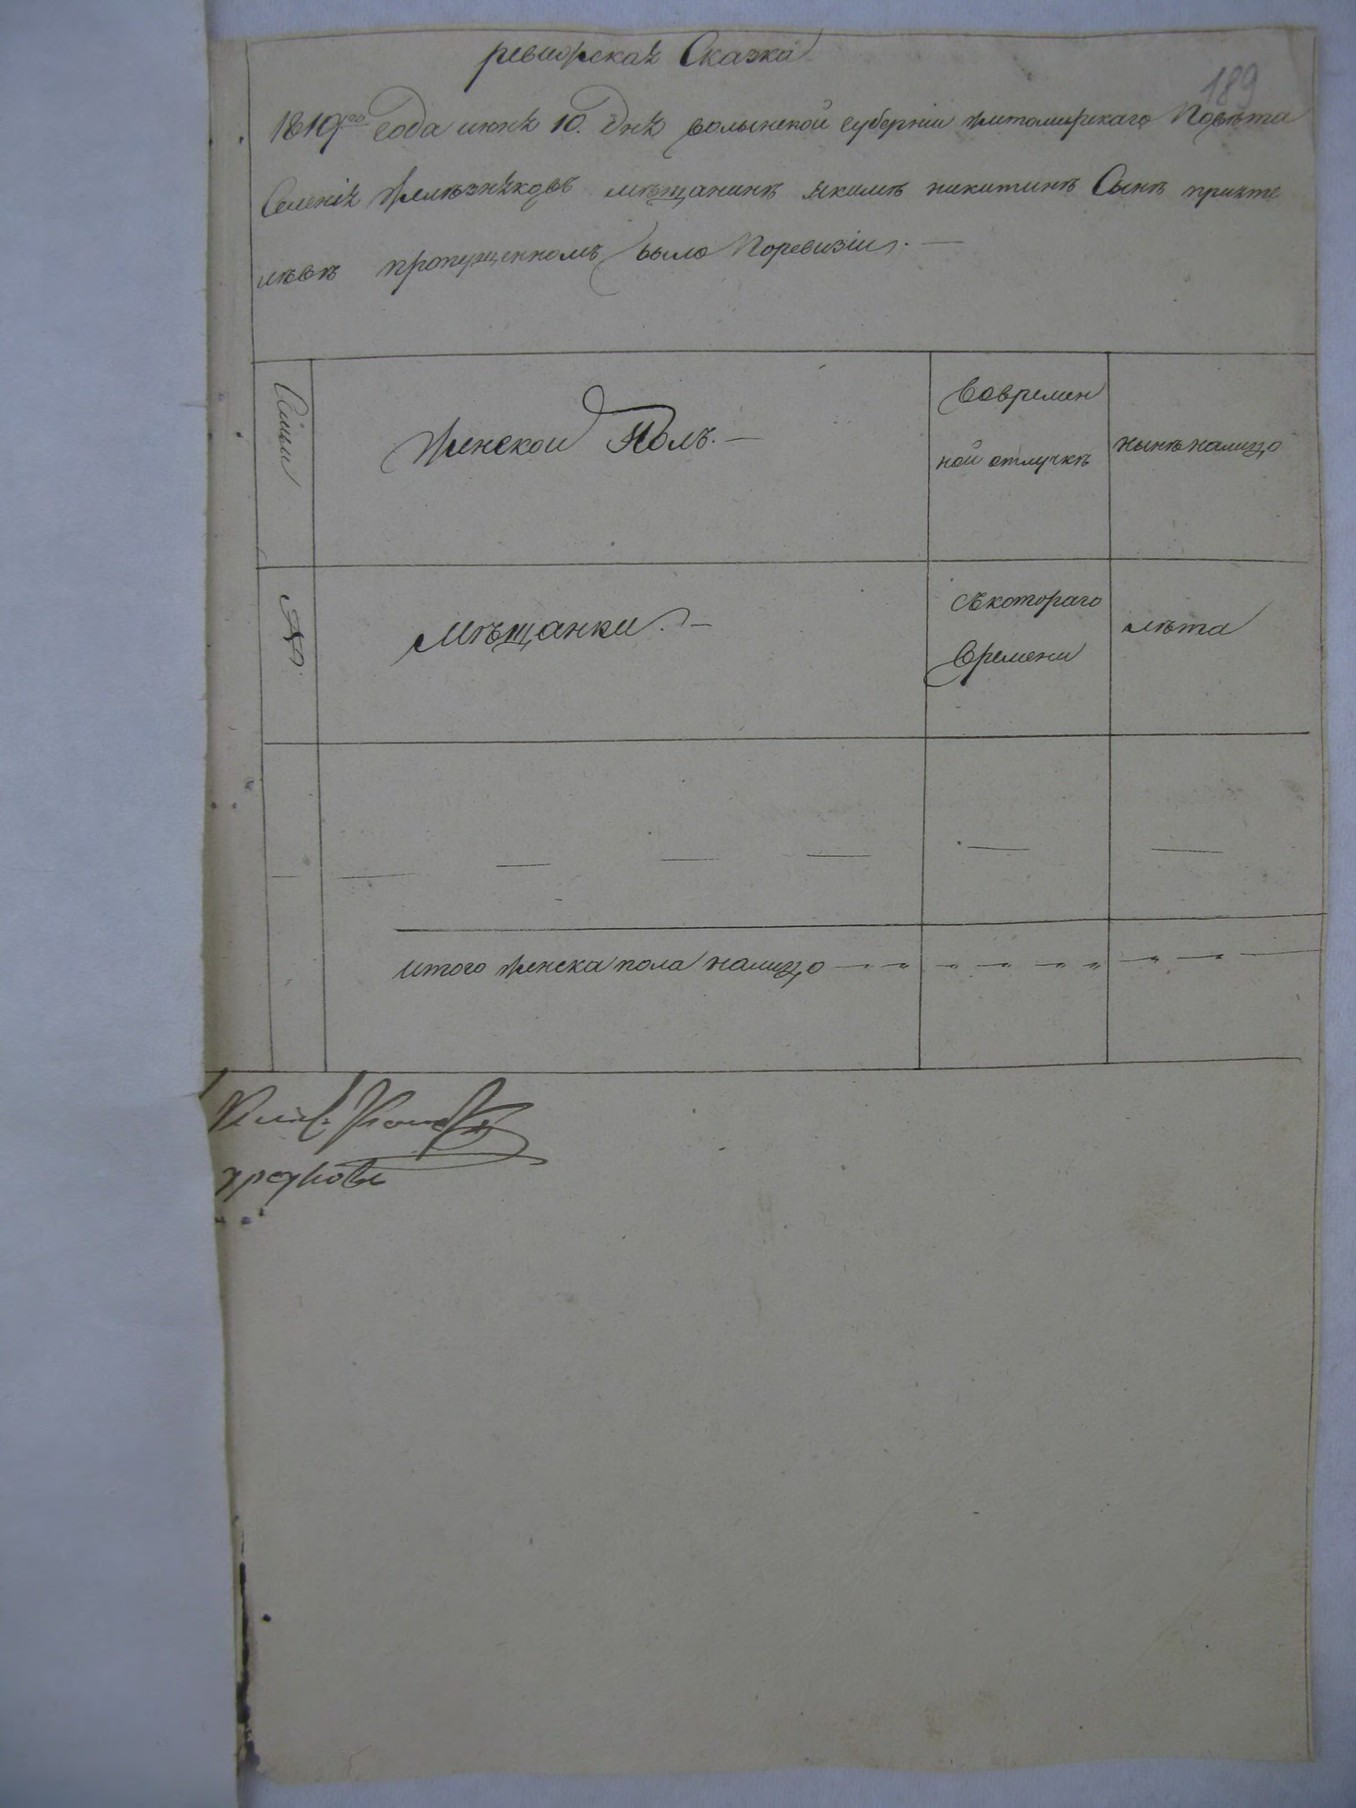 ревизская Сказка
189
1819го года июня 10. Дня волынской губернии житомирскаго Повѣта
Селенія мѣщанинъ якимъ никитинъ Сынъ
пропущенномъ было Поревизіи. —
Семьи
Женской Полъ. —
Вовремен
ной отлучкѣ
нынѣ налицо
№.
Мѣщанки. —
Съкотораго
времени
лѣта
— — — — — — —
итого женска пола налицо — „ — „